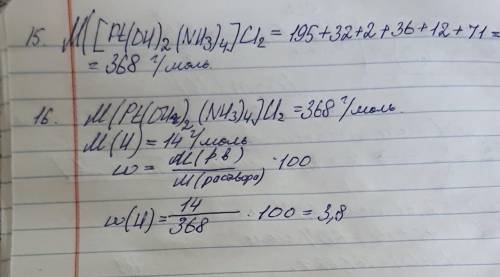 15. M([Pt(OH)2(NH3)4]Cl2 = 195+32+2+36+12+71=
= 368 г/моль.
16. M(Pt(OH2)2(NH3)4]Cl2 = 368 г/моль.
M(H) = 14 г/моль
w = M(р.в) / M(раствора) · 100
w(H) = 14 / 368 · 100 = 3,8